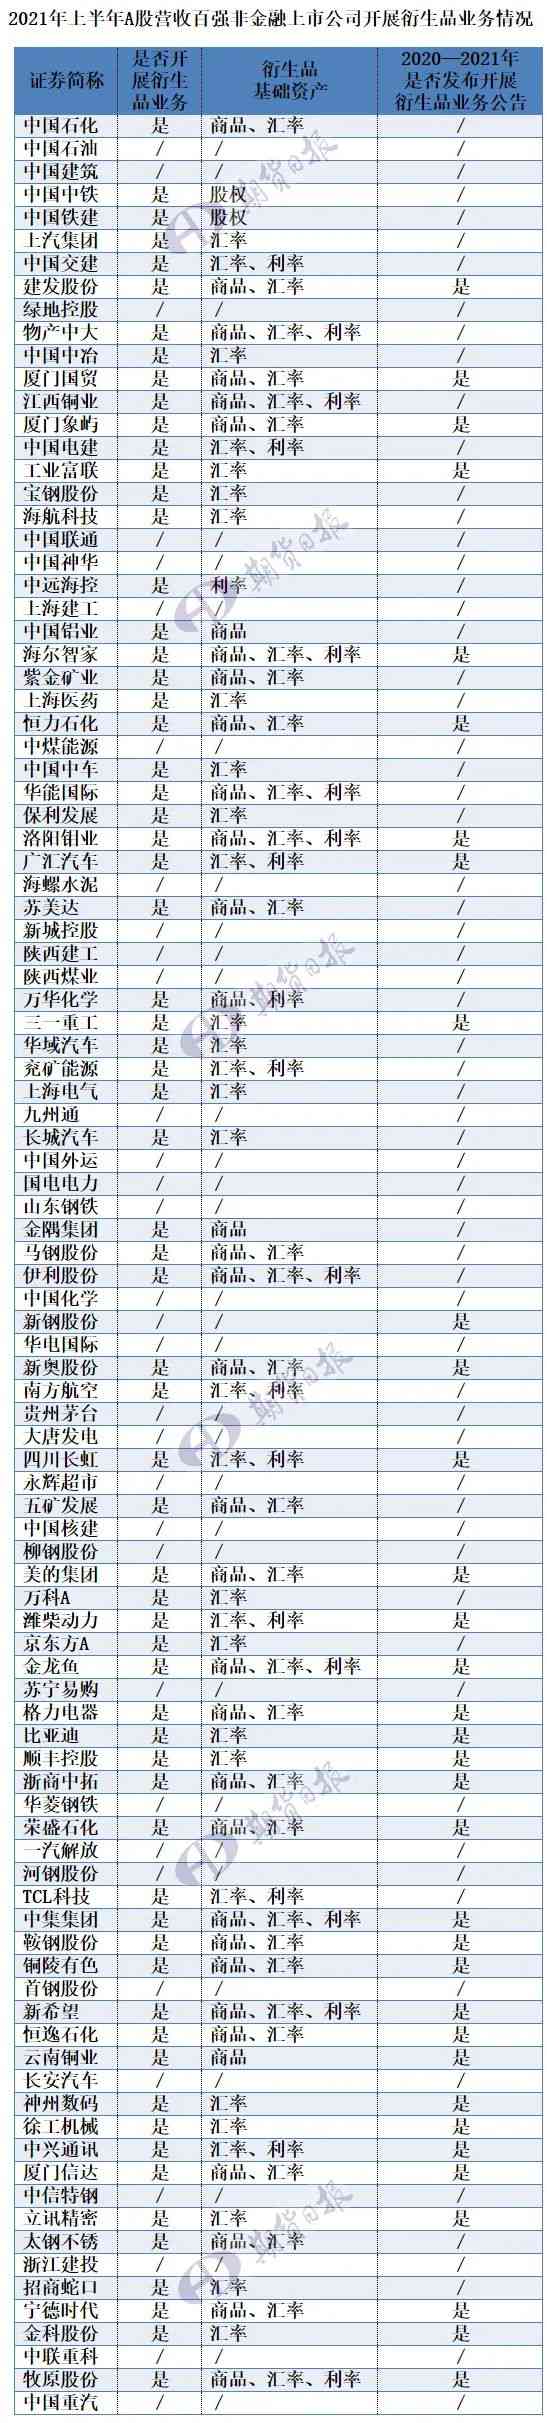 2021年上半年A股营收百强非金融上市公司开展衍生品业务情况
证券简称 是否开展衍生品业务 衍生品基础资产 2020—2021年是否发布开展衍生品业务公告
中国石化 是 商品、汇率 /
中国石油 / / /
中国建筑 / / /
中国中铁 是 股权 /
中国铁建 是 股权 /
上汽集团 是 汇率 /
中国交建 是 汇率、利率 /
建发股份 是 商品、汇率 是
绿地控股 / / /
物产中大 是 商品、汇率、利率 /
中国中冶 是 汇率 /
厦门国贸 是 商品、汇率 是
江西铜业 是 商品、汇率、利率 /
厦门象屿 是 商品、汇率 是
中国电建 是 汇率、利率 /
工业富联 是 汇率 是
宝钢股份 是 汇率 /
海航科技 是 汇率 /
中国联通 / / /
中国神华 / / /
中远海控 是 利率 /
上海建工 / / /
中国铝业 是 商品 /
海尔智家 是 商品、汇率、利率 是
紫金矿业 是 商品、汇率 /
上海医药 是 汇率 /
恒力石化 是 商品、汇率 是
中煤能源 / / /
中国中车 是 汇率 /
华能国际 是 商品、汇率、利率 /
保利发展 是 汇率 /
洛阳钼业 是 商品、汇率、利率 是
广汇汽车 是 汇率、利率 是
海螺水泥 / / /
苏美达 是 商品、汇率 /
新城控股 / / /
陕西建工 / / /
陕西煤业 / / /
万华化学 是 商品、利率 /
三一重工 是 汇率 是
华域汽车 是 汇率 /
兖矿能源 是 汇率、利率 /
上海电气 是 汇率 /
九州通 / / /
长城汽车 是 汇率 /
中国外运 / / /
国电电力 / / /
山东钢铁 / / /
金隅集团 是 商品 /
马钢股份 是 商品、汇率 /
伊利股份 是 商品、汇率、利率 /
中国化学 / / /
新钢股份 / / 是
华电国际 / / /
新奥股份 是 商品、汇率 是
南方航空 是 汇率、利率 /
贵州茅台 / / /
大唐发电 / / /
四川长虹 是 汇率、利率 是
永辉超市 / / /
五矿发展 是 商品、汇率 /
中国核建 / / /
柳钢股份 / / /
美的集团 是 商品、汇率 是
万科A 是 汇率 /
潍柴动力 是 汇率、利率 是
京东方A 是 汇率 /
金龙鱼 是 商品、汇率、利率 是
苏宁易购 / / /
格力电器 是 商品、汇率 是
比亚迪 是 汇率 是
顺丰控股 是 汇率 是
浙商中拓 是 商品、汇率 是
华菱钢铁 / / /
荣盛石化 是 商品、汇率 是
一汽解放 / / /
河钢股份 / / /
TCL科技 是 汇率、利率 /
中集集团 是 商品、汇率、利率 是
鞍钢股份 是 商品、汇率 是
铜陵有色 是 商品、汇率 是
首钢股份 / / /
新希望 是 商品、汇率、利率 是
恒逸石化 是 商品、汇率 是
云南铜业 是 商品 是
长安汽车 / / /
神州数码 是 汇率 是
徐工机械 是 汇率 是
中兴通讯 是 汇率、利率 是
厦门信达 是 商品、汇率 是
中信特钢 / / /
立讯精密 是 汇率 是
太钢不锈 是 商品、汇率 /
浙江建投 / / /
招商蛇口 是 汇率 /
宁德时代 是 商品、汇率 是
金科股份 是 汇率 是
中联重科 / / /
牧原股份 是 商品、汇率、利率 是
中国重汽 / / /
期货日报
期货日报
期货日报
期货日报
期货日报
期货日报